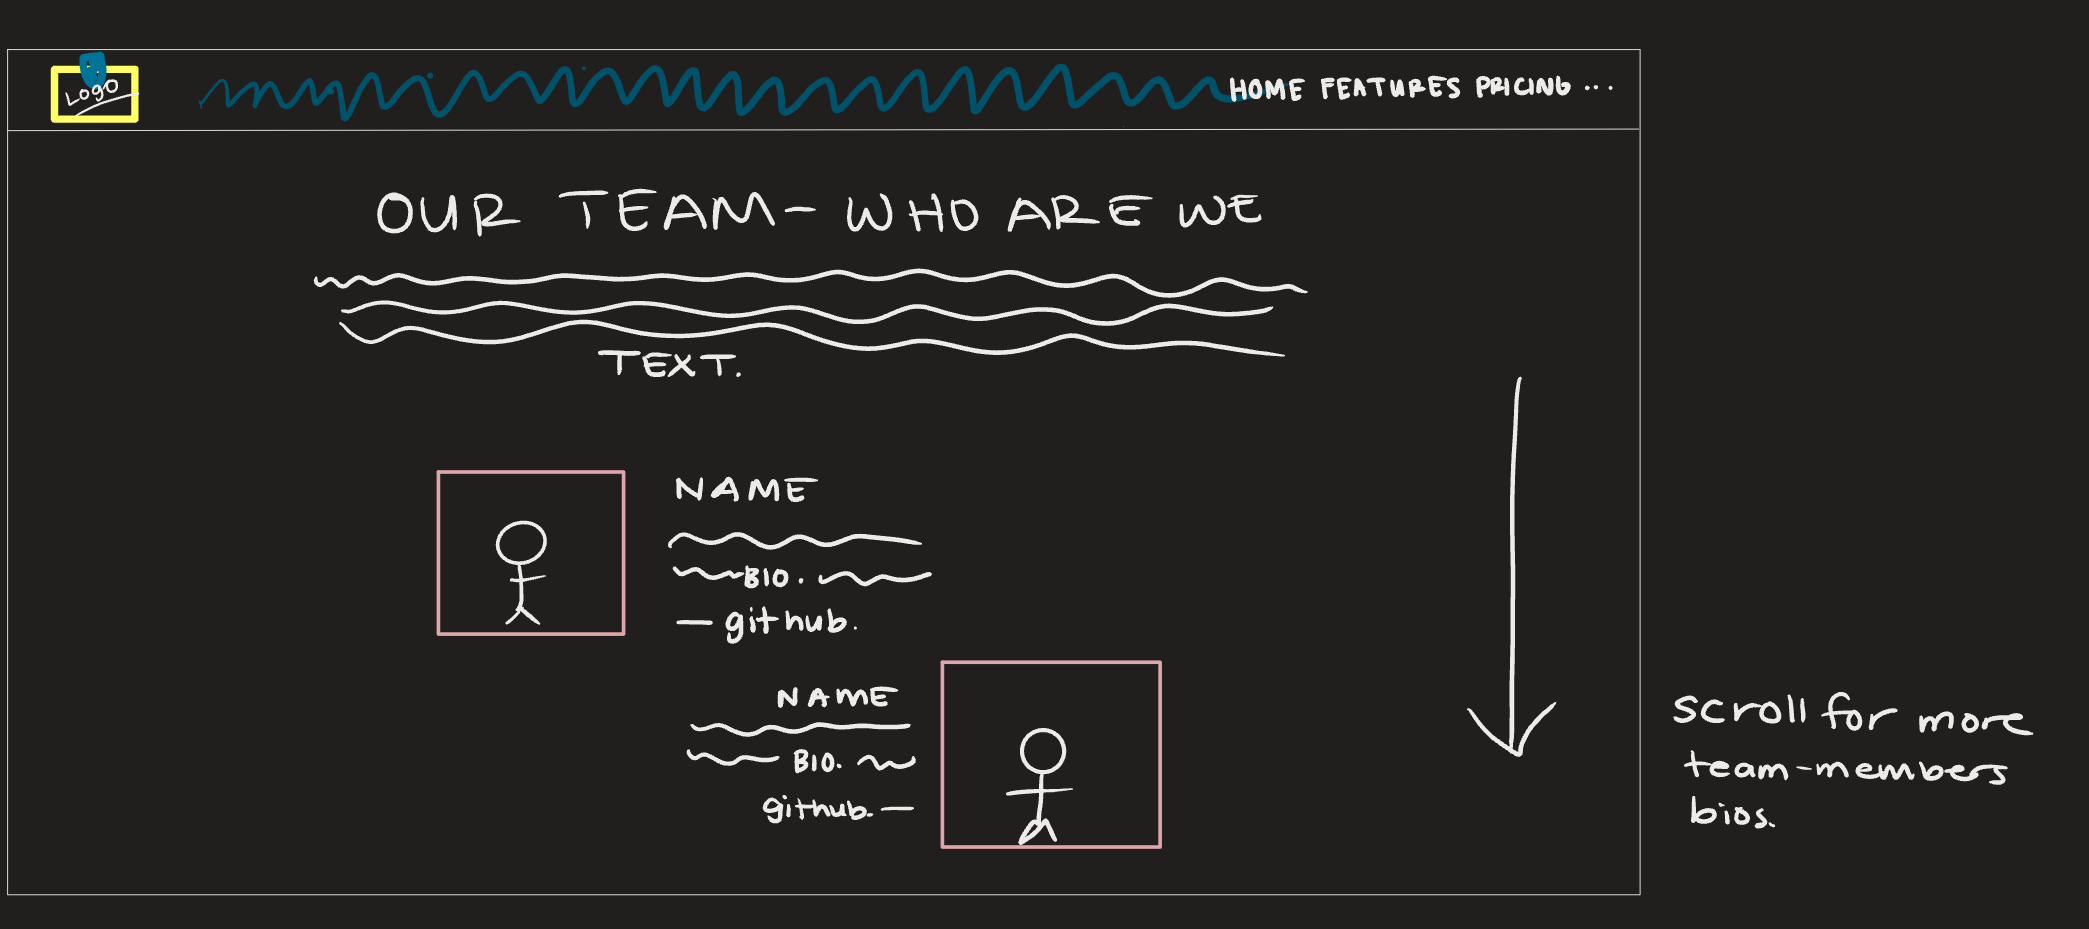 LOGO
HOME FEATURES PRICING ...
OUR TEAM - WHO ARE WE
TEXT.
NAME
BIO.
— github.
NAME
BIO.
github. —
scroll for more
team-members
bios.